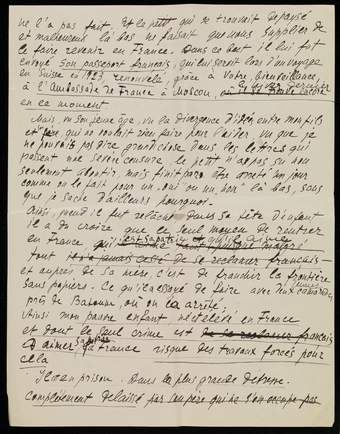 ne l'a pas fait. Et le petit qui se trouvait dépaysé
et malheureux là bas ne faisait que nous supplier de
le faire revenir en France. Dans ce but il lui fut
envoyé son passeport français, qui lui servit lors d'un voyage
en Suisse en 1923, renouvelé, grâce à Votre bienveillance,
à l'Ambassade de France à Moscou, où il se trouve encore
en ce moment
Mais, vu son jeune âge, vu la divergence d'idées entre mon fils
et père, qui ne voulait rien faire pour l'aider, vu que je
ne pouvais pas dire grand'chose dans les lettres qui
passent une sévère censure, le petit n'a pas su non
seulement aboutir, mais finit par être arrêté un jour
comme on le fait pour un "oui" ou un "non" là bas, sans
que je sache d'ailleurs pourquoi.
Ainsi, quand il fut relâché dans sa tête d'enfant
il a dû croire que le seul moyen de rentrer
en France, qui
tout de se réclamer français
et auprès de sa mère, c'est de franchir la frontière
sans papiers. Ce qu'il essaya de faire avec deux jeunes camarades
près de Batoum, où on l'a arrêté.
Ainsi mon pauvre enfant né et élevé en France
et dont le seul crime est de se réclamer français
d'aimer sa France risque des travaux forcés pour
cela
Il est en prison. Dans la plus grande détresse.
complètement délaissé par son père qui ne s'en occupe pas